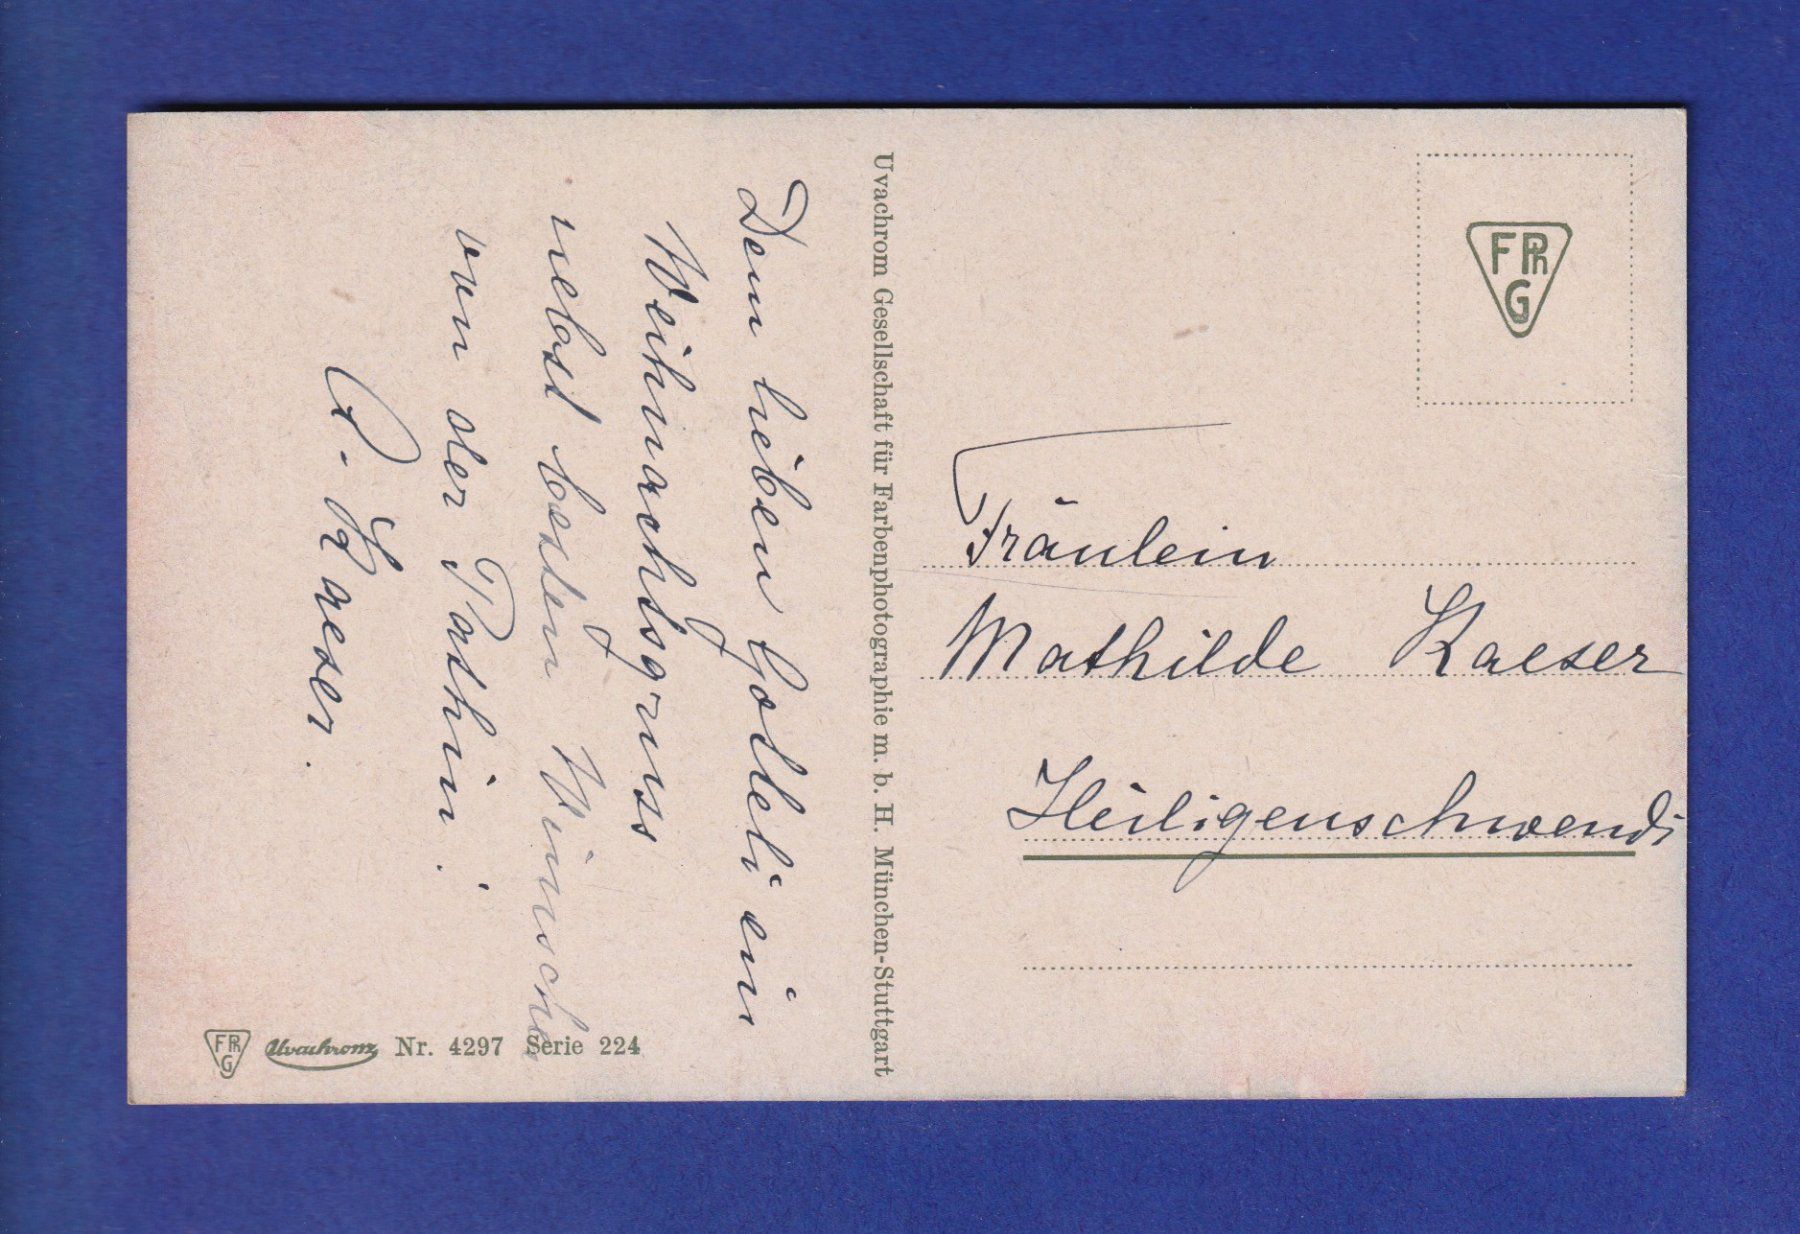 Dem lieben Gotteli ein
Weihnachtsgruss
nebst besten Wünschen
von der Pathin.
R. Kaeser.
Uvachrom Gesellschaft für Farbenphotographie m. b. H. München-Stuttgart
FPh
G
Fräulein
Mathilde Kaeser
Heiligenschwendi
FPh
G
Uvachrom Nr. 4297 Serie 224